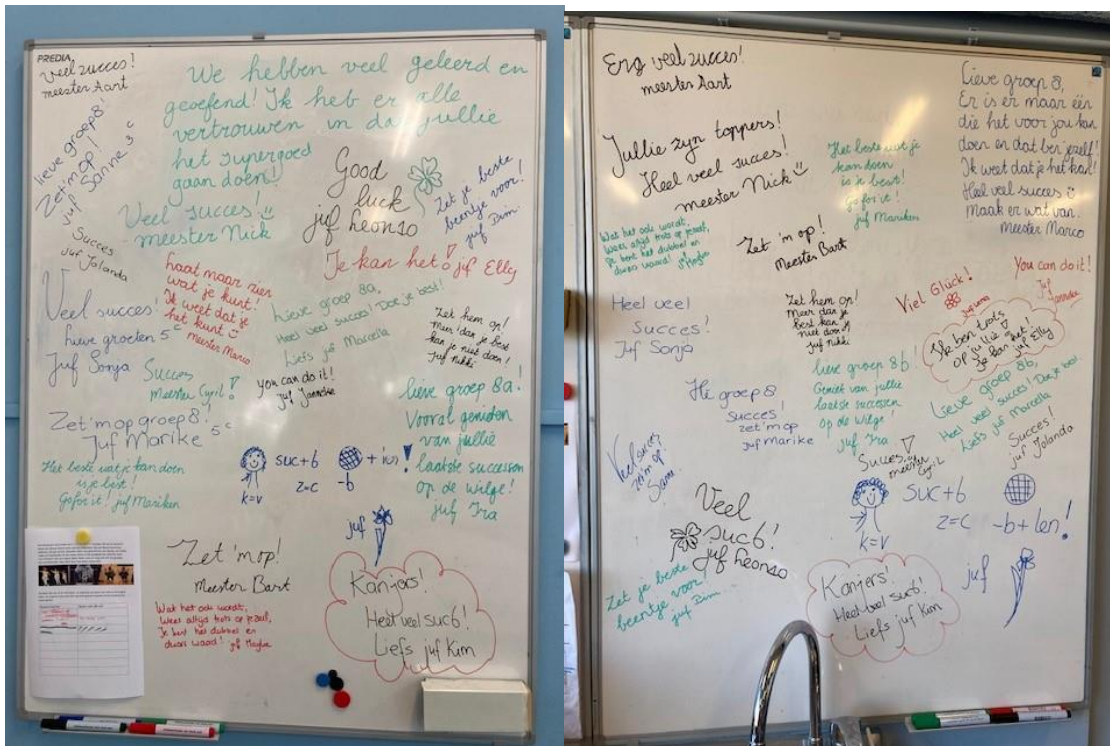 PREDIA
Veel succes!
meester Aart
We hebben veel geleerd en
geoefend! Ik heb er alle
vertrouwen in dat jullie
het supergoed
gaan doen!
Veel succes!
meester Nick
lieve groep 8!
Zet 'm op!
juf Sanne 3c
Good
luck
juf Leonso
Zet je beste
beentje voor!
juf Dim.
Succes
juf Jolanda
Je kan het! juf Elly
Laat maar zien
wat je kunt!
Ik weet dat je
het kunt
meester Marco
Veel succes!
Lieve groeten 5c
Juf Sonja
Lieve groep 8a,
Heel veel succes! Doe je best!
Liefs juf Marcella
Zet hem op!
Meer dan je best
kan je niet doen!
Juf Nikki
Succes
meester Cyril!
you can do it!
Juf Janneke
lieve groep 8a!
Vooral genieten
van jullie
laatste successen
op de wilge!
juf Ira
Zet 'm op groep 8!
Juf Marike 5c
Het beste wat je kan doen
is je best!
Go for it! juf Mariken
suc+6
z=c
-b
k=v
juf
Zet 'm op!
Meester Bart
Wat het ook wordt,
Wees altijd trots op jezelf,
Je bent het dubbel en
dwars waard!
Kanjers!
Heel veel suc6!
Liefs juf Kim
Erg veel succes!
meester Aart
Lieve groep 8,
Er is er maar één
die het voor jou kan
doen en dat ben jezelf!
Ik weet dat je het kan!
Heel veel succes
Maak er wat van.
Meester Marco
Jullie zijn toppers!
Heel veel succes!
meester Nick
Het beste wat je
kan doen
is je best!
Go for it!
juf Mariken
Wat het ook wordt,
Wees altijd trots op jezelf,
Je bent het dubbel en
dwars waard!
Zet 'm op!
Meester Bart
Heel veel
Succes!
Juf Sonja
Zet hem op!
Meer dan je
best kan je
niet doen!
Juf Nikki
Viel Glück!
You can do it!
Juf
Janneke
Ik ben trots
op jullie
Je kan het!
juf Elly
lieve groep 8b!
Geniet van jullie
laatste successen
op de wilge!
juf Ira
Lieve groep 8b,
Heel veel succes! Doe je best!
Liefs juf Marcella
He groep 8
succes!
zet 'm op
juf Marike
Succes!
juf Jolanda
Veel succes,
zet 'm op
Sanne
Succes,
meester
Cyril
Veel
suc6!
juf Leonso
suc+6
z=c
-b+len!
k=v
juf
Zet je beste
beentje voor!
juf Dim.
Kanjers!
Heel veel suc6!
Liefs juf Kim